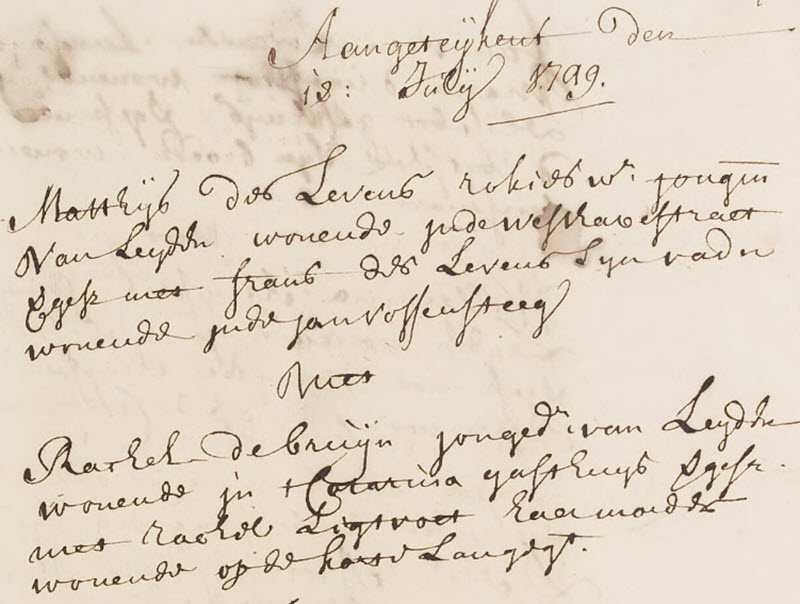 Aangeteijkent den
18: Julij 1799.
Matthijs des Levens rokies wr. jongm
Van Leijden wonende jnde westhavestraet
Vgest met frans des Levens syn vader
wonende jnde janvossensteeg
Met
Rachel de bruijn jonged. van Leyden
wonende jn t Catarina gasthuys Vgest.
met rachel Ligtvoet haer moeder
wonende op de korte Langegt.